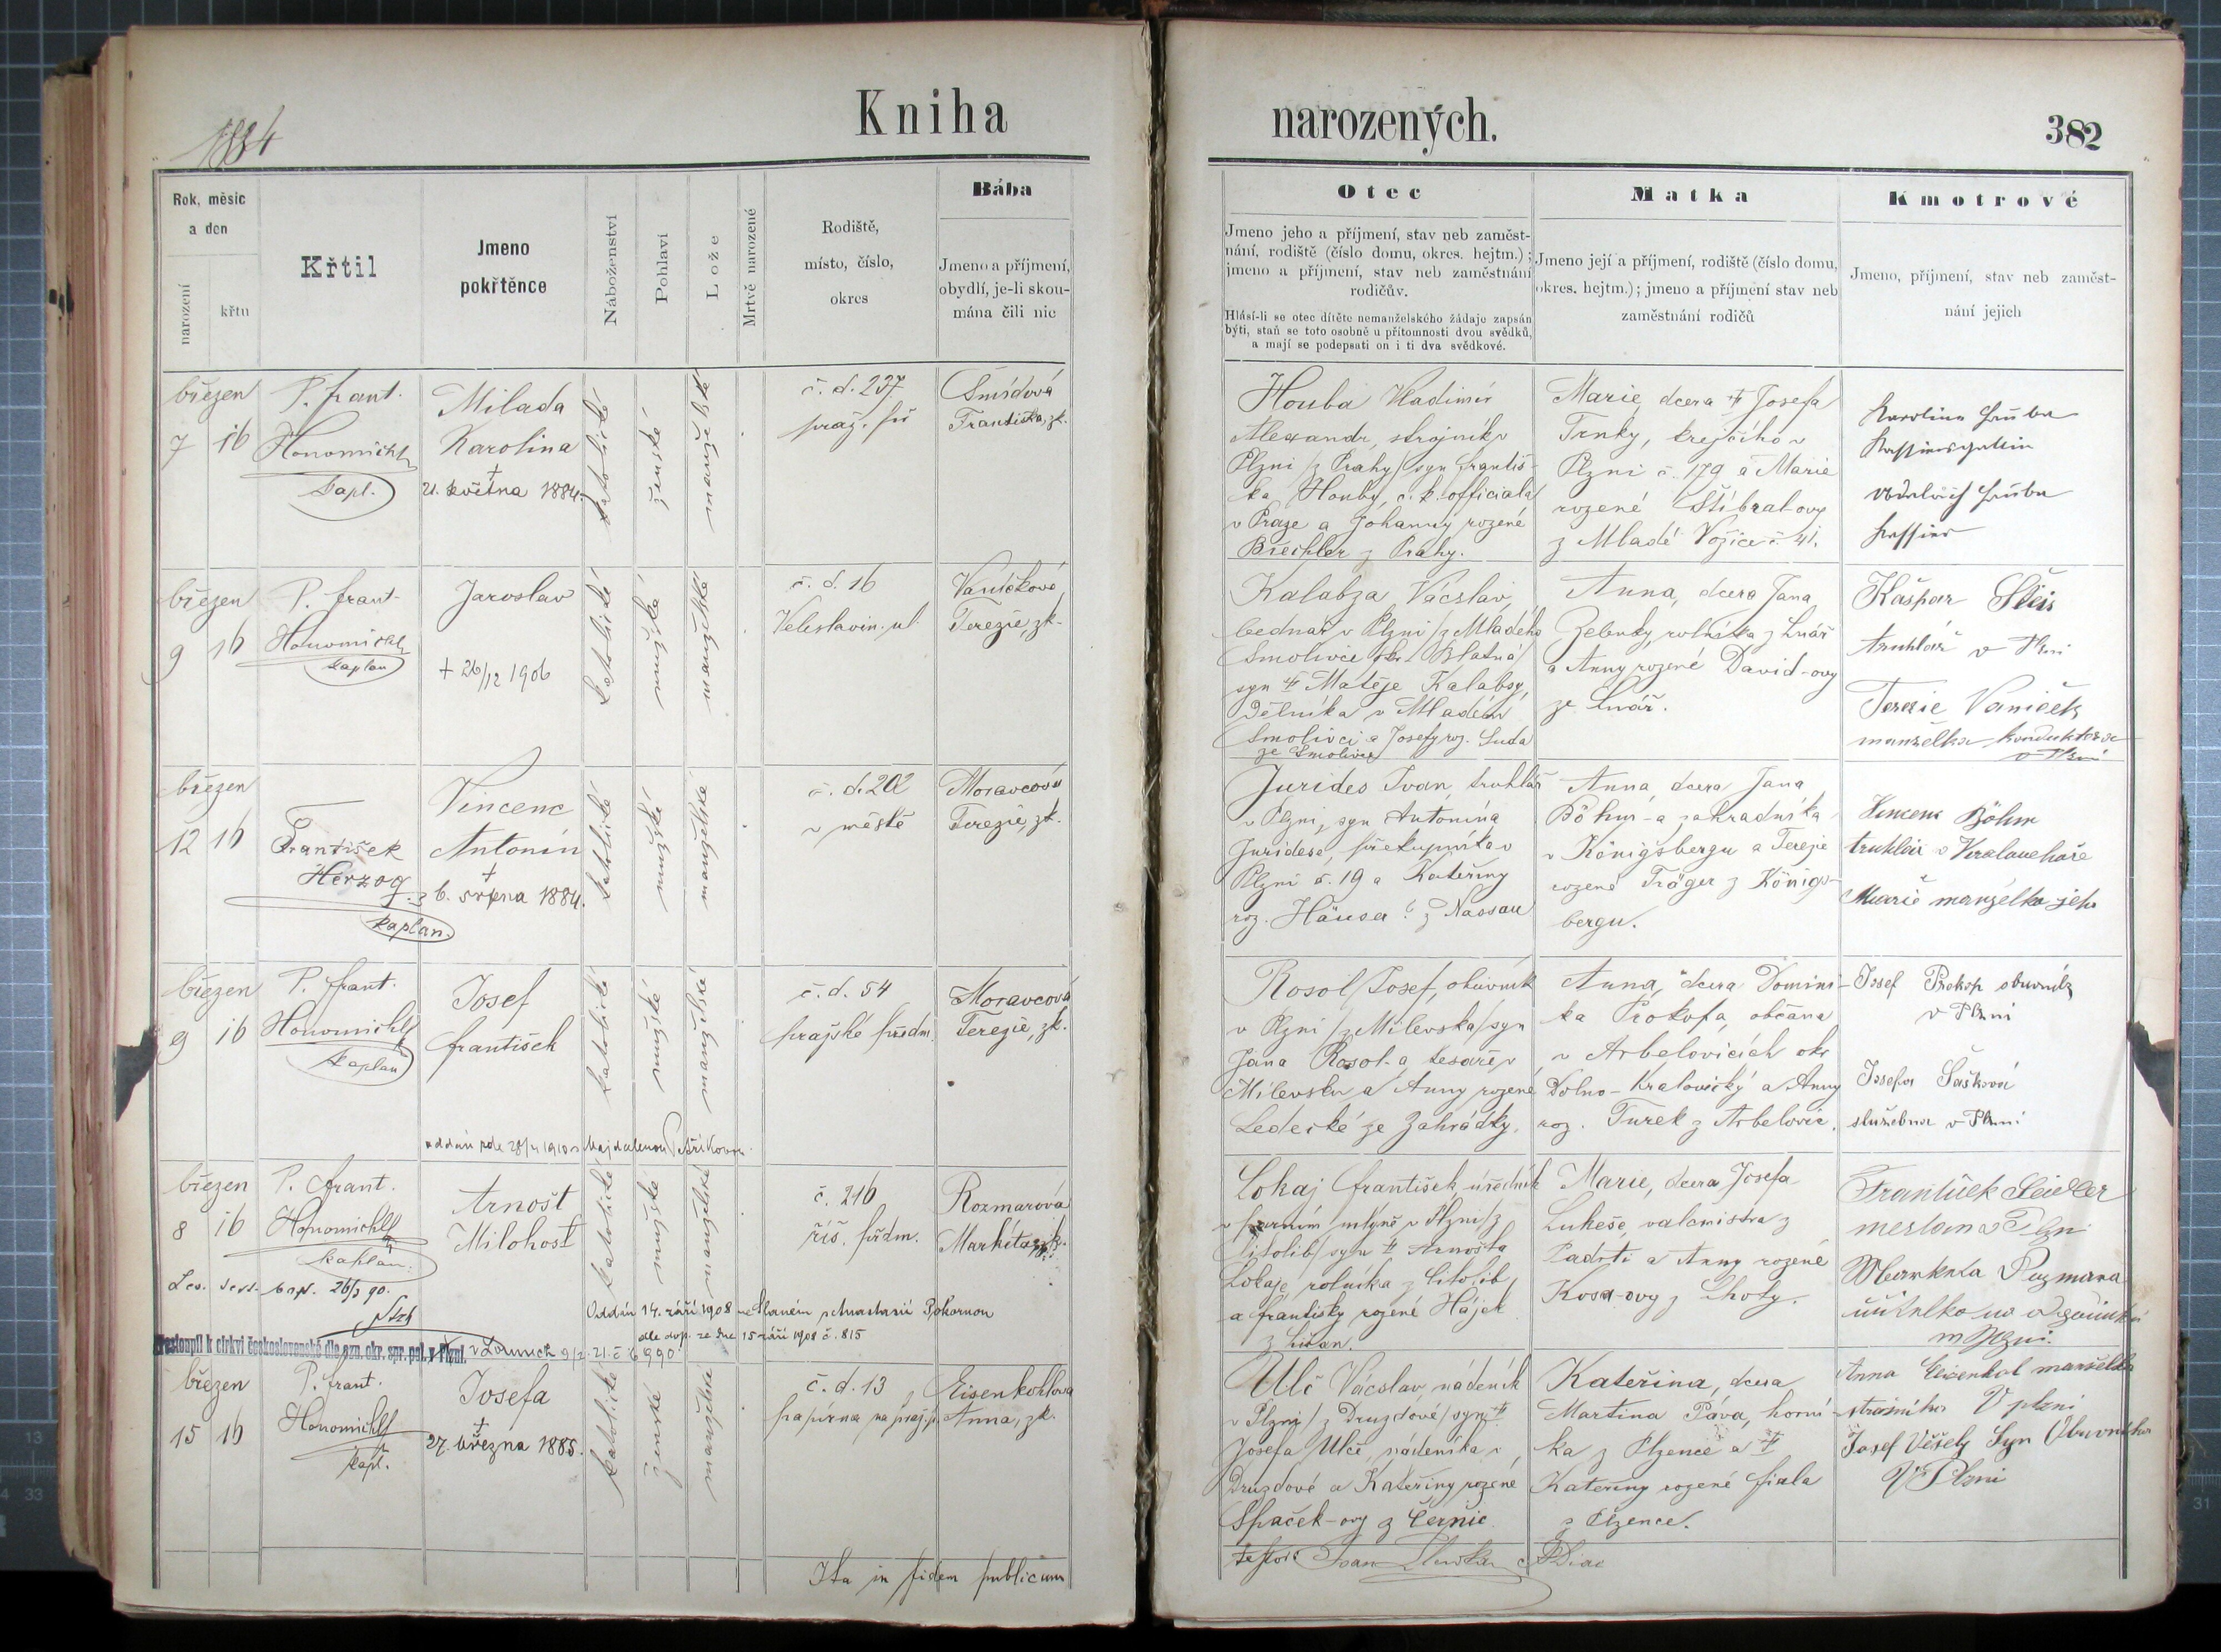 1884
Kniha
narozených.
382
Rok, měsíc
a den
narození
křtu
Křtil
Jmeno
pokřtěnce
Náboženství
Pohlaví
Lože
Mrtvě narozené
Rodiště,
místo, číslo,
okres
Bába
Jmeno a příjmení,
obydlí, je-li skou-
mána čili nic
Otec
Jmeno jeho a příjmení, stav neb zaměst-
nání, rodiště (číslo domu, okres. hejtm.);
jmeno a příjmení, stav neb zaměstnání
rodičův.
Hlásí-li se otec dítěte nemanželského žádaje zapsán
býti, staň se toto osobně u přítomnosti dvou svědků,
a mají se podepsati on i ti dva svědkové.
Matka
Jmeno její a příjmení, rodiště (číslo domu,
okres. hejtm.); jmeno a příjmení stav neb
zaměstnání rodičů
Kmotrové
Jmeno, přijmení, stav neb zaměst-
nání jejich
březen
7 16
P. Frant.
Honomichl
kapl.
Milada
Karolina
†
21. května 1884.
katolické
ženské
manželské
č. d. 237
praž. př
Šmídová
Františka, zk.
Houba Vladimír
Alexandr, strojník v
Plzni /z Prahy/ syn Františ-
ka Houby, c. k. officiala
v Praze a Johanny rozené
Brechler z Prahy.
Marie, dcera † Josefa
Trnky, krejčího v
Plzni č. 179 a Marie
rozené Stibral-ovy
z Mladé Vožice č 41.
Karolina Huba
Kassiersgattin
Huba
Kassier
březen
9 16
P. Frant.
Honomichl
kaplan
Jaroslav
+ 26/12 1906
katolické
mužské
manželské
č. d. 16
Veleslavin. ul.
Vaníčková
Terezie, zk.
Kalabza Václav,
bednář v Plzni /z Mladého
Smolivce okr. Blatná/
syn † Matěje Kalabzy,
dělníka v Mladém
Smolivci a Josefy roz. Suda
ze Smolivce
Anna, dcera Jana
Zelenky, rolníka z Lnář
a Anny rozené David-ovy
ze Lnář.
Kašpar Štěis
truhlář v Plzni
Terezie Vaniček
manželka konduktera
v Plzni
březen
12 16
František
Herzog
kaplan.
Vincenc
Antonín
†
6. srpna 1884.
katolické
mužské
manželské
č. d. 202
v městě
Moravcová
Terezie, zk.
Jurides Ivan, truhlář
v Plzni, syn Antonína
Juridesa, překupníka v
Plzni č. 19 a Kateřiny
roz. Häuser z Nassau
Anna, dcera Jana
Böhm-a zahradníka
v Königsbergu a Terezie
rozené Träger z Königs-
bergu.
Vincenc Böhm
truhlář v
Marie manželka jeho
březen
9 16
P. Frant.
Honomichl
kaplan
Josef
František
katolické
mužské
manželské
č. d. 54
pražské předm.
Moravcová
Terezie, zk.
Rosol Josef, obuvník
v Plzni /z Milevska/ syn
Jana Rosol-a tesaře v
Milevsku a Anny rozené
Ledecké ze Zahrádky.
Anna, dcera Domini-
ka Prokopa, občana
v Arbelovicích okr
Dolno-Kralovický a Anny
roz. Turek z Arbelovic.
Josef Prokop obuvník
v Plzni
Josefa Šašková
služebna v Plzni
oddán zde 28/4 1910 s Majdalenou Petříkovou
březen
8 16
P. Frant.
Honomichl
kaplan.
Arnošt
Milohost
katolické
mužské
manželské
č. 216
říš. předm.
Rozmarová
Markéta, zk.
Lokaj František, úředník
v parním mlýně v Plzni /z
Litolib/ syn † Arnošta
Lokaje, rolníka z Litolib
a Františky rozené Hájek
z Lišan.
Marie, dcera Josefa
Lukeše, valcmistra z
Padrti a Anny rozené
Kosa-ovy z Lhoty.
František Seidler
mešťan v Plzni
Markéta Rozmara
Lev. test. bapt. 26/3 90.
Oddán 14. září 1908 ve Slaném s Anastasií Pokornou
dle dop. ze dne 15 září 1908 č. 815
Přestoupil k církvi československé dle ozn. okr. spr. pol. v Plzni. v Lounech 9/2. 21. č. 6990
březen
15 16
P. Frant.
Honomichl
kapl.
Josefa
†
27. března 1885.
katolické
ženské
manželské
č. d. 13
papírna na praž. p.
Eisenkohlova
Anna, zk.
Ulč Václav, nádeník
v Plzni /z Druzdové/ syn †
Josefa Ulče, nádeníka v
Druzdové a Kateřiny rozené
Špaček-ovy z Černic.
Kateřina, dcera
Martina Páva, horní-
ka z Plzence a †
Kateřiny rozené Fiala
z Plzence.
Anna Eisenkol manželka
strážního V plzni
Josef Vešely Syn Obuvníka
V Plzni
Ita in fidem publicam